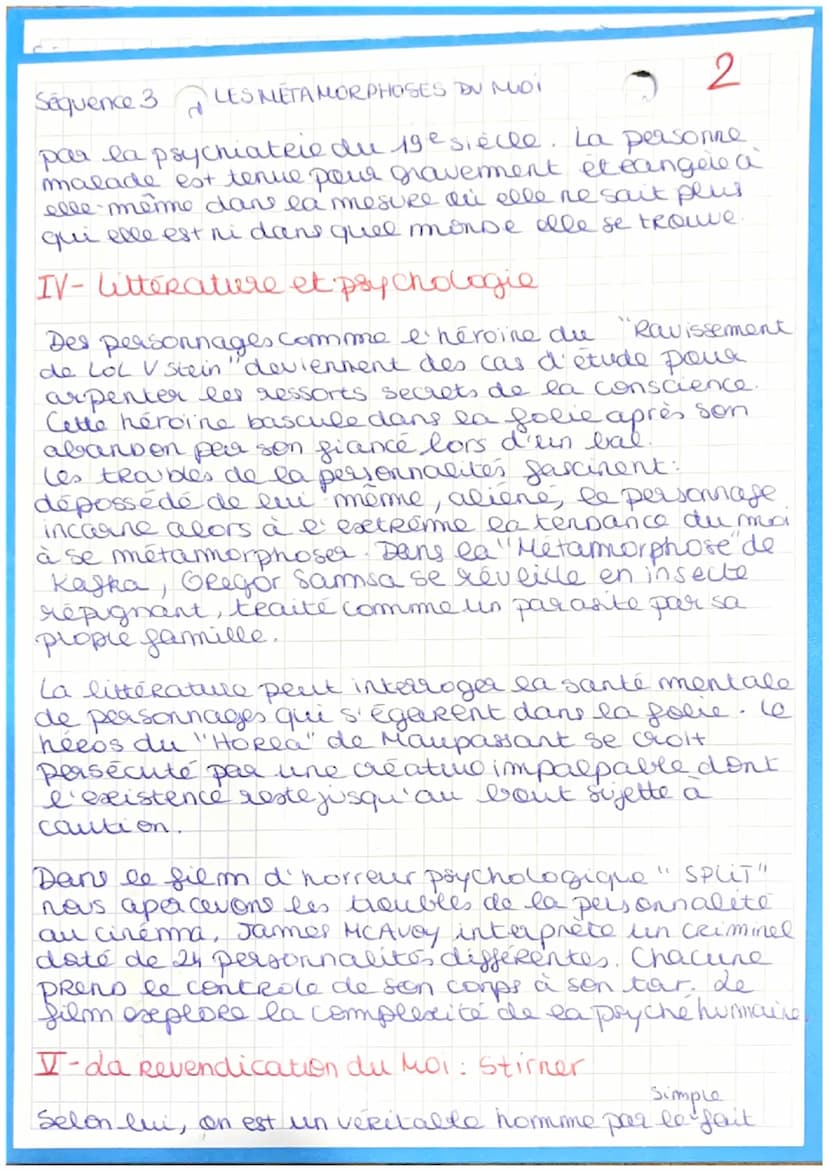 Séquence 3 LES MÉTAMORPHOSES DU MOI 2
par la psychiatrie du 19e siècle. La personne
malade est tenue pour gravement étrangère à
elle-même dans la mesure où elle ne sait plus
qui elle est ni dans quel monde elle se trouve.
IV- Littérature et psychologie
Des personnages comme l'héroïne du "Ravissement
de Lol V Stein" deviennent des cas d'étude pour
arpenter les ressorts secrets de la conscience.
Cette héroïne bascule dans la folie après son
abandon par son fiancé lors d'un bal.
Les troubles de la personnalités fascinent :
dépossédé de lui même, aliéné, le personnage
incarne alors à l'extrême la tendance du moi
à se métamorphoser. Dans la "Métamorphose" de
Kafka, Gregor Samsa se réveille en insecte
répugnant, traité comme un parasite par sa
propre famille.
La littérature peut interroger la santé mentale
de personnages qui s'égarent dans la folie. Le
héros du "Horla" de Maupassant se croit
persécuté par une créature impalpable dont
l'existence reste jusqu'au bout sujette à
caution.
Dans le film d'horreur psychologique "SPLIT"
nous apercevons les troubles de la personnalité
au cinéma, James McAvoy interprète un criminel
doté de 24 personnalités différentes. Chacune
prend le contrôle de son corps à son tar. Le
film explore la complexité de la psyché humaine.
V- La Revendication du Moi : Stirner
simple
Selon lui, on est un véritable homme par le fait